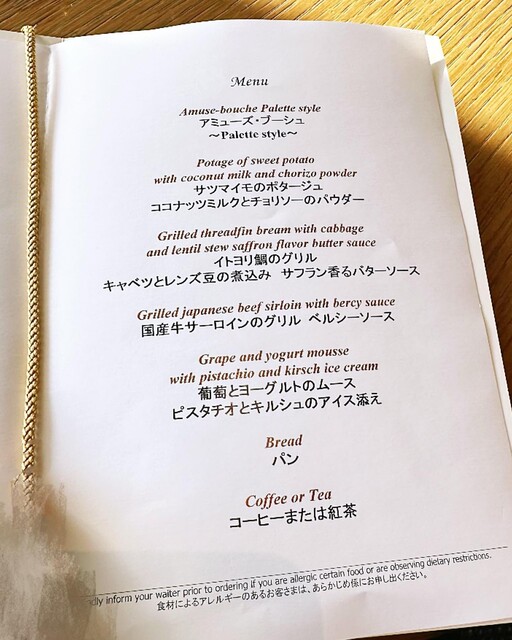 Menu
Amuse-bouche Palette style
アミューズ・ブーシュ
～Palette style～
Potage of sweet potato
with coconut milk and chorizo powder
サツマイモのポタージュ
ココナッツミルクとチョリソーのパウダー
Grilled threadfin bream with cabbage
and lentil stew saffron flavor butter sauce
イトヨリ鯛のグリル
キャベツとレンズ豆の煮込み サフラン香るバターソース
Grilled japanese beef sirloin with bercy sauce
国産牛サーロインのグリル ベルシーソース
Grape and yogurt mousse
with pistachio and kirsch ice cream
葡萄とヨーグルトのムース
ピスタチオとキルシュのアイス添え
Bread
パン
Coffee or Tea
コーヒーまたは紅茶
inform your waiter prior to ordering if you are allergic certain food or are observing dietary restrictions.
食材によるアレルギーのあるお客さまは、あらかじめ係にお申し出ください。